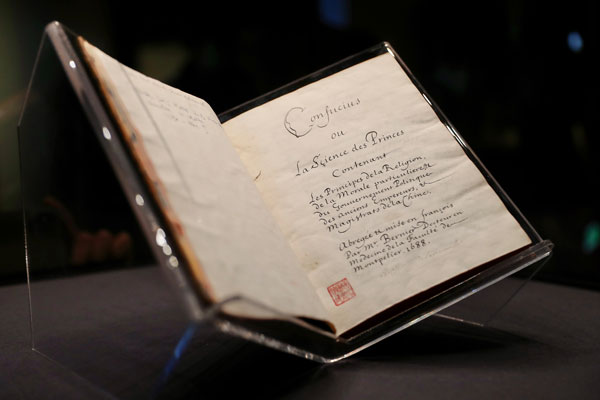 Confucius
ou
La Science des Princes
Contenant
Les Principes de la Religion,
de la Morale particuliere,
du Gouvernement Politique
des anciens Empereurs, &
Magistrats de la Chine.
Abregée & mise en françois
Par Mr. Bernier Docteur en
Medecine de la Faculté de
Montpelier 1688.